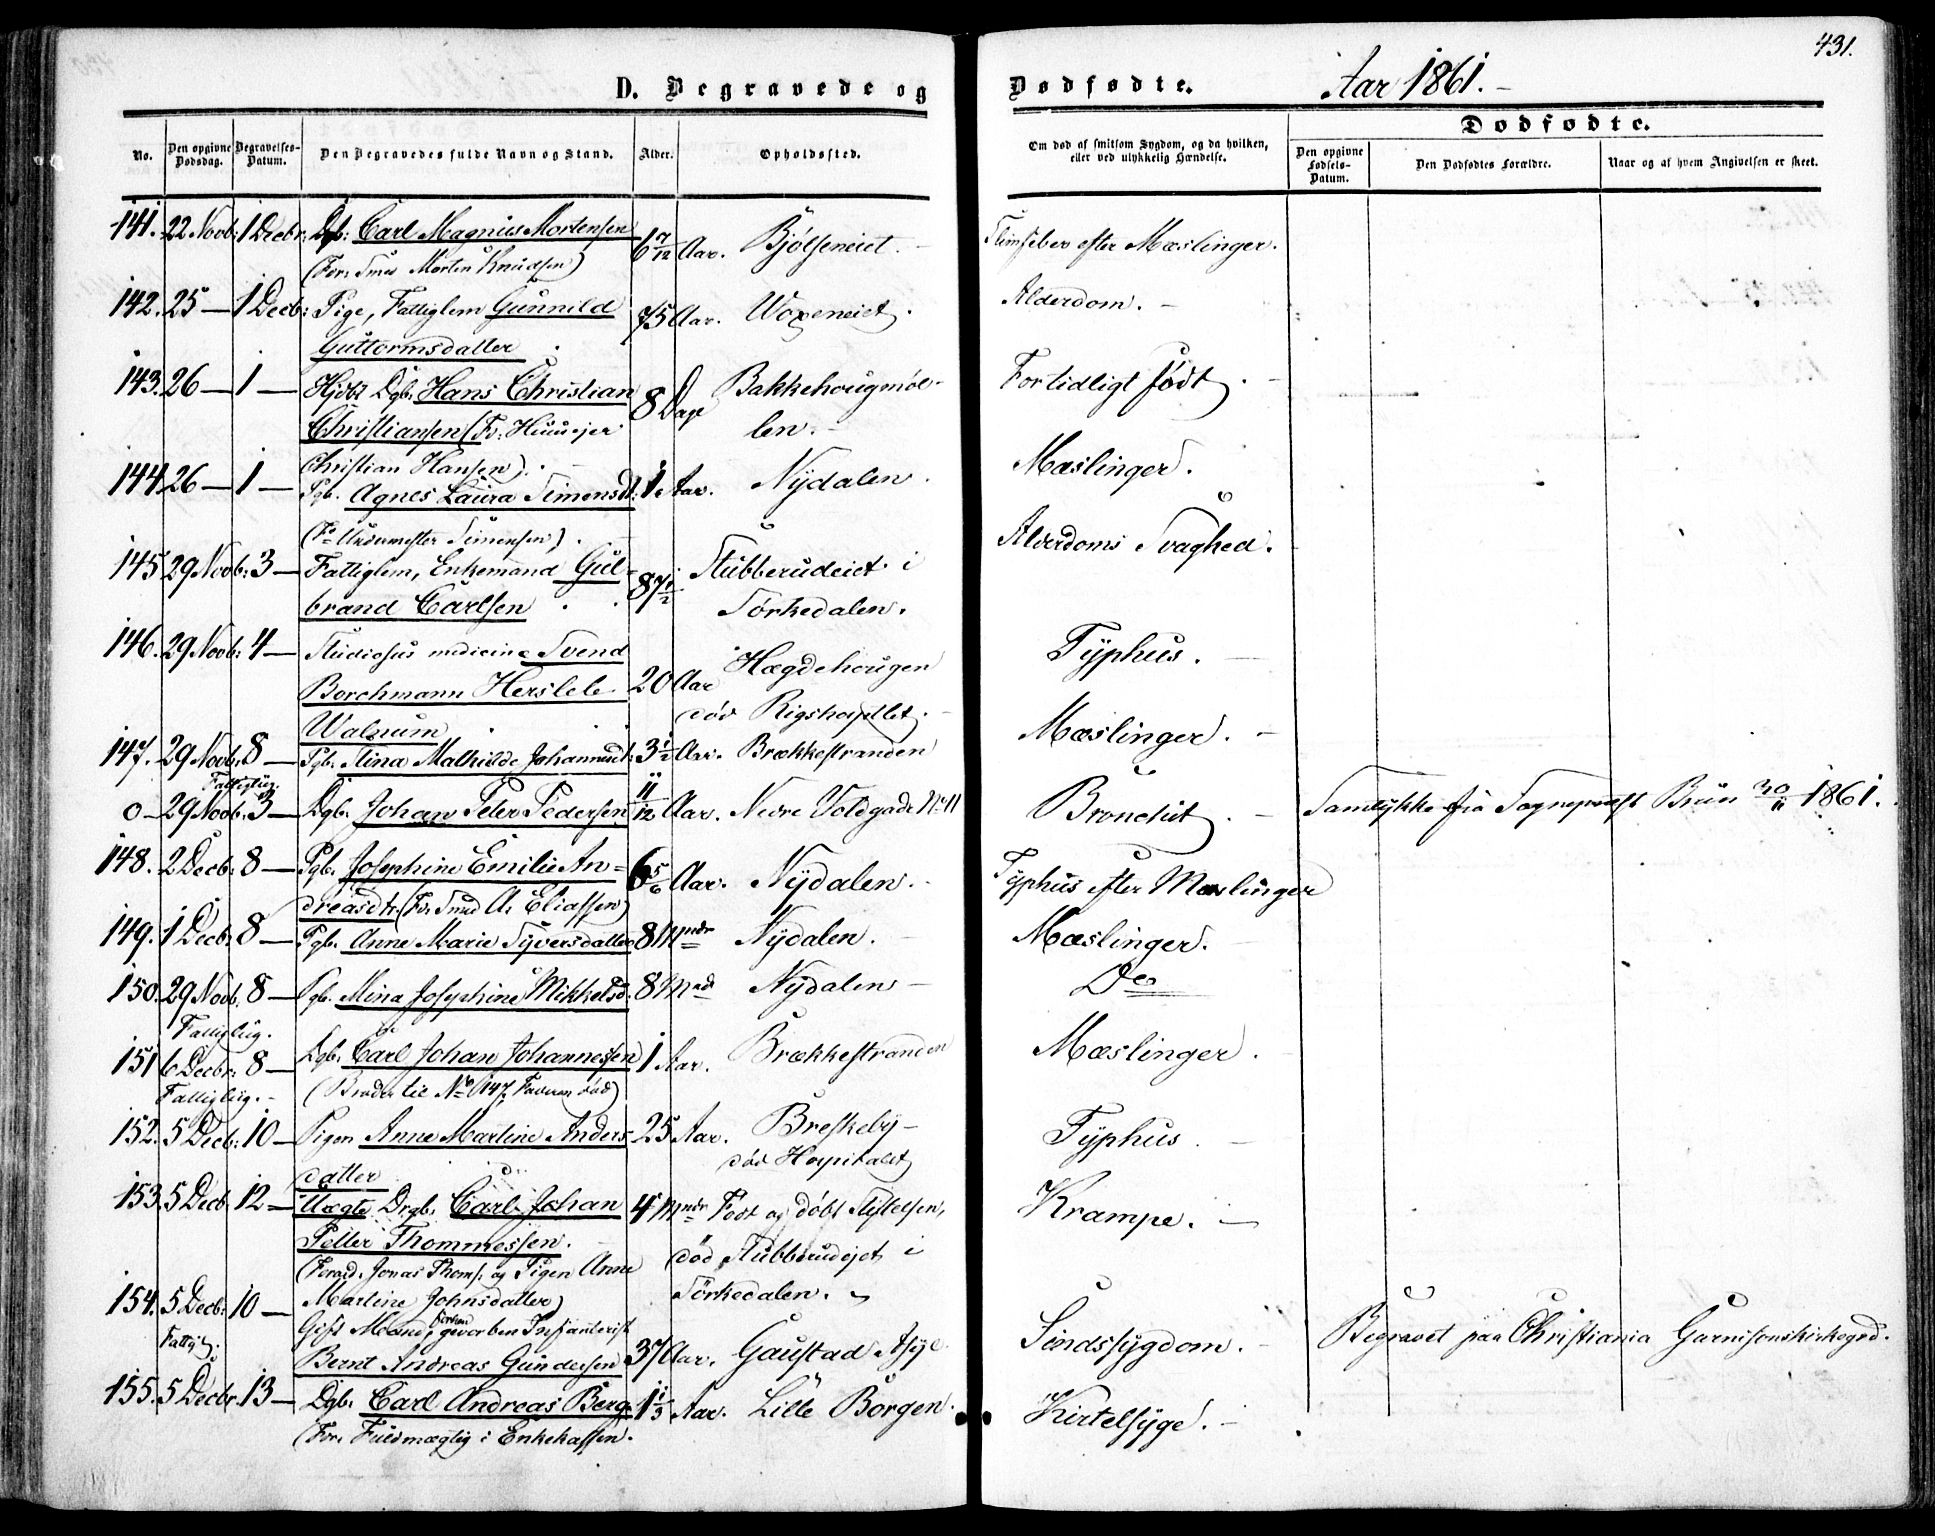 431.
D. Begravede og Dødfødte. Aar 1861.
Dødfødte.
No.
Den opgivne Dødsdag.
Begravelses-Datum.
Den Begravedes fulde Navn og Stand.
Alder.
Opholdssted.
Om død af smitsom Sygdom, og da hvilken,
eller ved ulykkelig Hændelse.
Den opgivne Fødsels-Datum.
Den Dødfødtes Forældre.
Naar og af hvem Angivelsen er skeet.
141. 22 Novb: 1 Decbr: Dgb: Carl Magnus Mortensen 6 7/12 Aar. Bjølseneiet. Slimfeber efter Mæslinger.
(For: Smed Morten Knudsen)
142. 25 — 1 Decb: Pige, Fattiglem Gunnild 75 Aar. Woxeneiet. Alderdom. —
Guttormsdatter
143. 26 — 1 — Hjdbt Dgb. Hans Christian 8 Dage Bakkehougmøl- Fortidligt født. —
Christiansen (F: Huusejer len. —
Christian Hansen).
144. 26 — 1 — Pgb. Agnes Laura Simensdt: 1 Aar. Nydalen. Mæslinger.
(F: Simensen).
145. 29 Novb: 3 — Fattiglem, Enkemand Gul- 87 1/2 Stubberudeiet i Alderdoms Svaghed.
brand Carlsen Sørkedalen.
146. 29 Novb: 4 — Studiosus medicine Svend 20 Aar Hægdehougen Typhus. —
Borchmann Hersleb død Rigshospitlet. —
Walnum
147. 29 Novb. 8 — Pgb. Stina Mathilde Johannesdt: 3 1/2 Aar. Brækkestranden Mæslinger. —
Fattiglig.
0 — 29 Novb. 3 — Dgb. Johan Peter Pedersen 11/12 Aar. Nedre Voldgade No 11 Bronchit. — Samtykke fra Sogneprest Brun 30/11 1861.
148. 2 Decb: 8 — Pgb. Josephine Emilie An= 6 5/6 Aar. Nydalen. — Typhus efter Mæslinger
dreasdtr. (F: Smed A. Eliassen)
149. 1 Decb: 8 — Pgb. Anne Marie Syversdatter 8 Mndr Nydalen. — Mæslinger. —
150. 29 Novb. 8 — Pgb. Mina Josephine Mikkelsd. 8 Mnd Nydalen — Do
Fattiglig.
151 6 Decbr: 8 — Dgb. Carl Johan Johannessen 1 Aar. Brækkestranden Mæslinger.
Fattiglig. — (Broder til No 147, Faderen død)
152. 5 Decb: 10 — Pigen Anne Martine Anders- 25 Aar. Breskeby — Typhus. —
datter død Hospitalet
153. 5 Decb. 12 — Uægte Drgb. Carl Johan 4 Mndr Født og døbt Krampe. —
Petter Thommessen. død Stubberudejet i
(Foræld. Jonas Thoms: og Pigen Anne Sørkedalen. —
Martine Johnsdatter)
154. 5 Decb: 10 — Gift Mand, forhen gevorben Infanterist
Fattigl. Bernt Andreas Gundersen 37 Aar. Gaustad Asyl Sindssygdom. — Begravet paa Christiania Garnisonskirkegrd.
155. 5 Decbr. 13 — Dgb. Carl Andreas Berg 1 1/3 Aar. Lille Borgen. Kirtelsyge. —
(For: Fuldmægtig i Enkekassen.